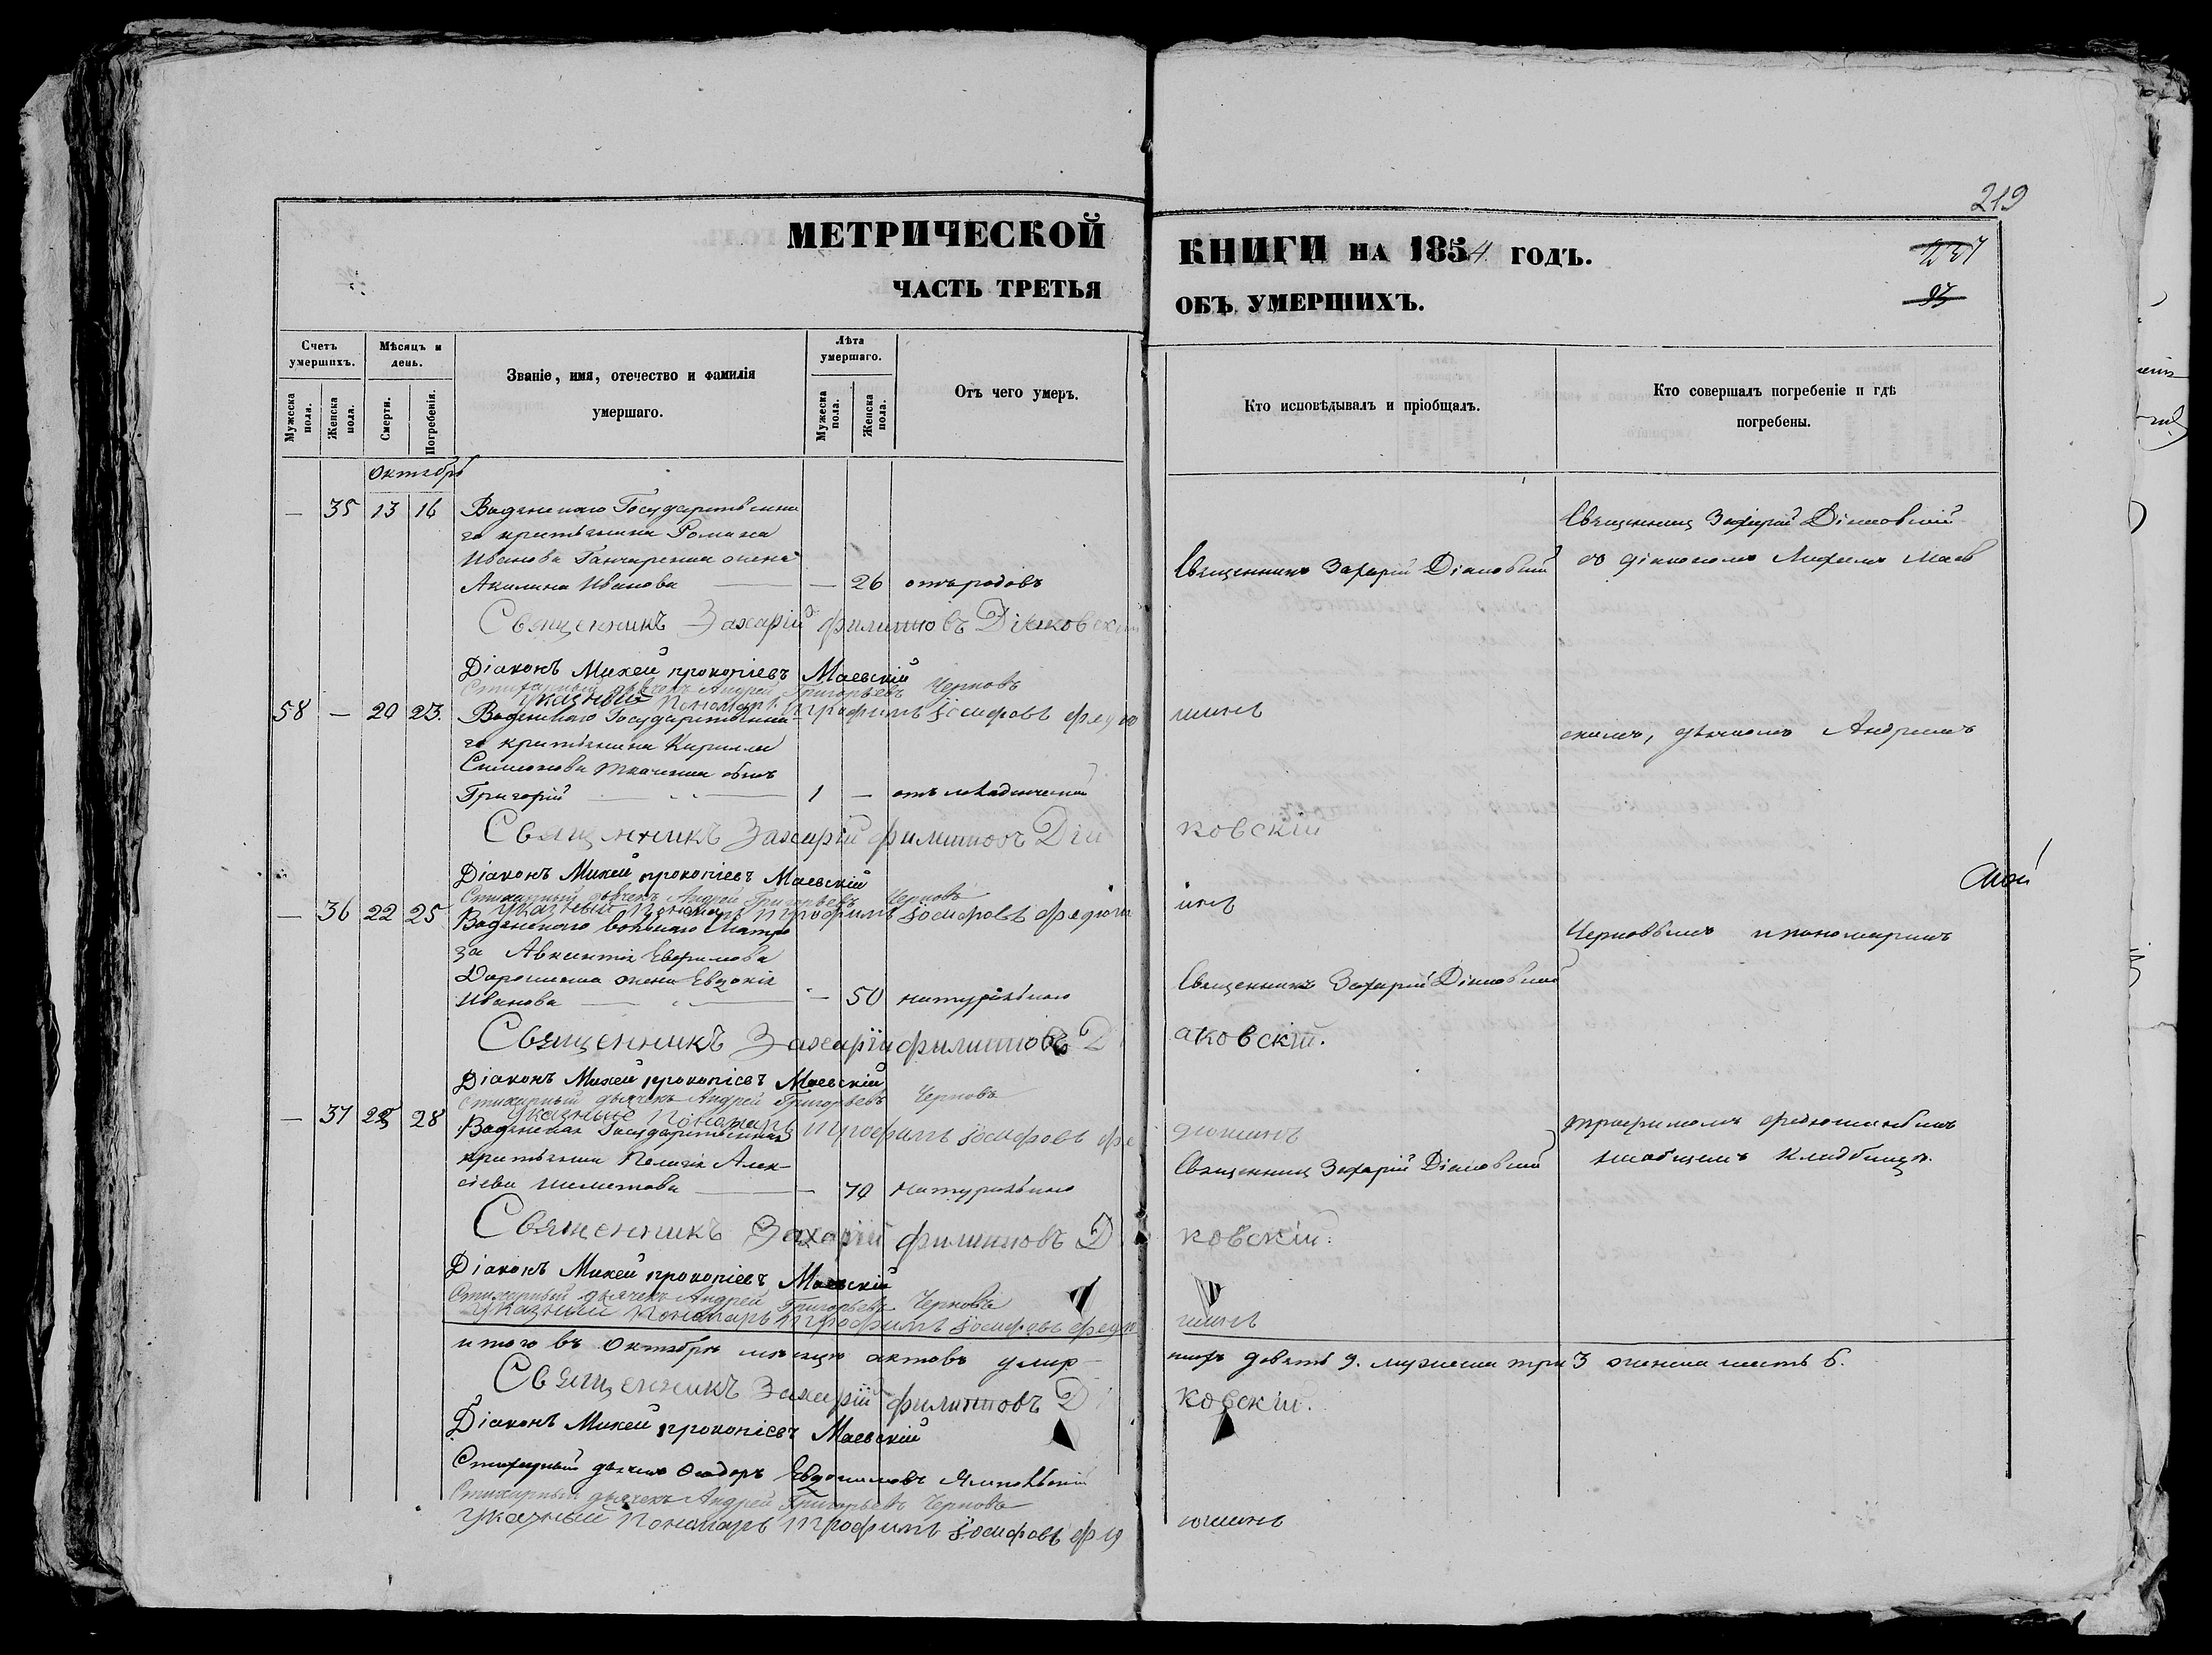 219
МЕТРИЧЕСКОЙ КНИГИ НА 1854 ГОДЪ.
ЧАСТЬ ТРЕТЬЯ ОБЪ УМЕРШИХЪ.
Счетъ умершихъ.
Мужеска пола.
Женска пола.
Мѣсяцъ и день.
Смерти.
Погребенія.
Званіе, имя, отечество и фамилія умершаго.
Лѣта умершаго.
Мужеска пола.
Женска пола.
Отъ чего умеръ.
Кто исповѣдывалъ и пріобщалъ.
Кто совершалъ погребеніе и гдѣ погребены.
Октябрь
— 35 13 16 Государственна
го крестьянина Романа
Иванова Ганчаренка жена
Акилина Иванова — 26 отъ родовъ
Священникъ Захарій Діаковскій
Священникъ Захарій Діаковскій
съ діакономъ Михеемъ Маев
Священникъ Захарій Филиповъ Діаковскій
Діаконъ Михей Прокопіевъ Маевскій
Стихарный дьячекъ Андрей Григорьевъ Черновъ
Указный Пономарь Трофимъ Іосифовъ Федюшинъ
58 — 20 23. Государственна
го крестьянина Кирилла
Симеонова Ткаченка сынъ
Григорій 1 —
скимъ, дьячкомъ Андреемъ
Священникъ Захарій Филиповъ Діаковскій
Діаконъ Михей Прокопіевъ Маевскій
Стихарный дьячекъ Андрей Григорьевъ Черновъ
Указный Пономарь Трофимъ Іосифовъ Федюшинъ
— 36 22 25 Матро
за Авксентія Евфимова
жена Евдокія
Иванова — 50 натурально
Священникъ Захарій Діаковскій
Черновымъ и пономаремъ
Священникъ Захарій Филиповъ Діаковскій.
Діаконъ Михей Прокопіевъ Маевскій
Стихарный дьячекъ Андрей Григорьевъ Черновъ
Указный Пономарь Трофимъ Іосифовъ Федюшинъ
— 37 25 28 Государственная
крестьянка Пелагія Алек
сѣева — 70 натурально
Священникъ Захарій Діаковскій
Трофимомъ Федюшинымъ
на общемъ кладбищѣ.
Священникъ Захарій Филиповъ Діаковскій.
Діаконъ Михей Прокопіевъ Маевскій
Стихарный дьячекъ Андрей Григорьевъ Черновъ
Указный Пономарь Трофимъ Іосифовъ Федюшинъ
итого въ Октябрѣ мѣсяцѣ актовъ умер
шихъ девять 9. мужеска три 3 женска шесть 6.
Священникъ Захарій Филиповъ Діаковскій.
Діаконъ Михей Прокопіевъ Маевскій
Стихарный дьячекъ Ѳеодоръ Евдокимовъ
Стихарный дьячекъ Андрей Григорьевъ Черновъ
Указный Пономарь Трофимъ Іосифовъ Федюшинъ